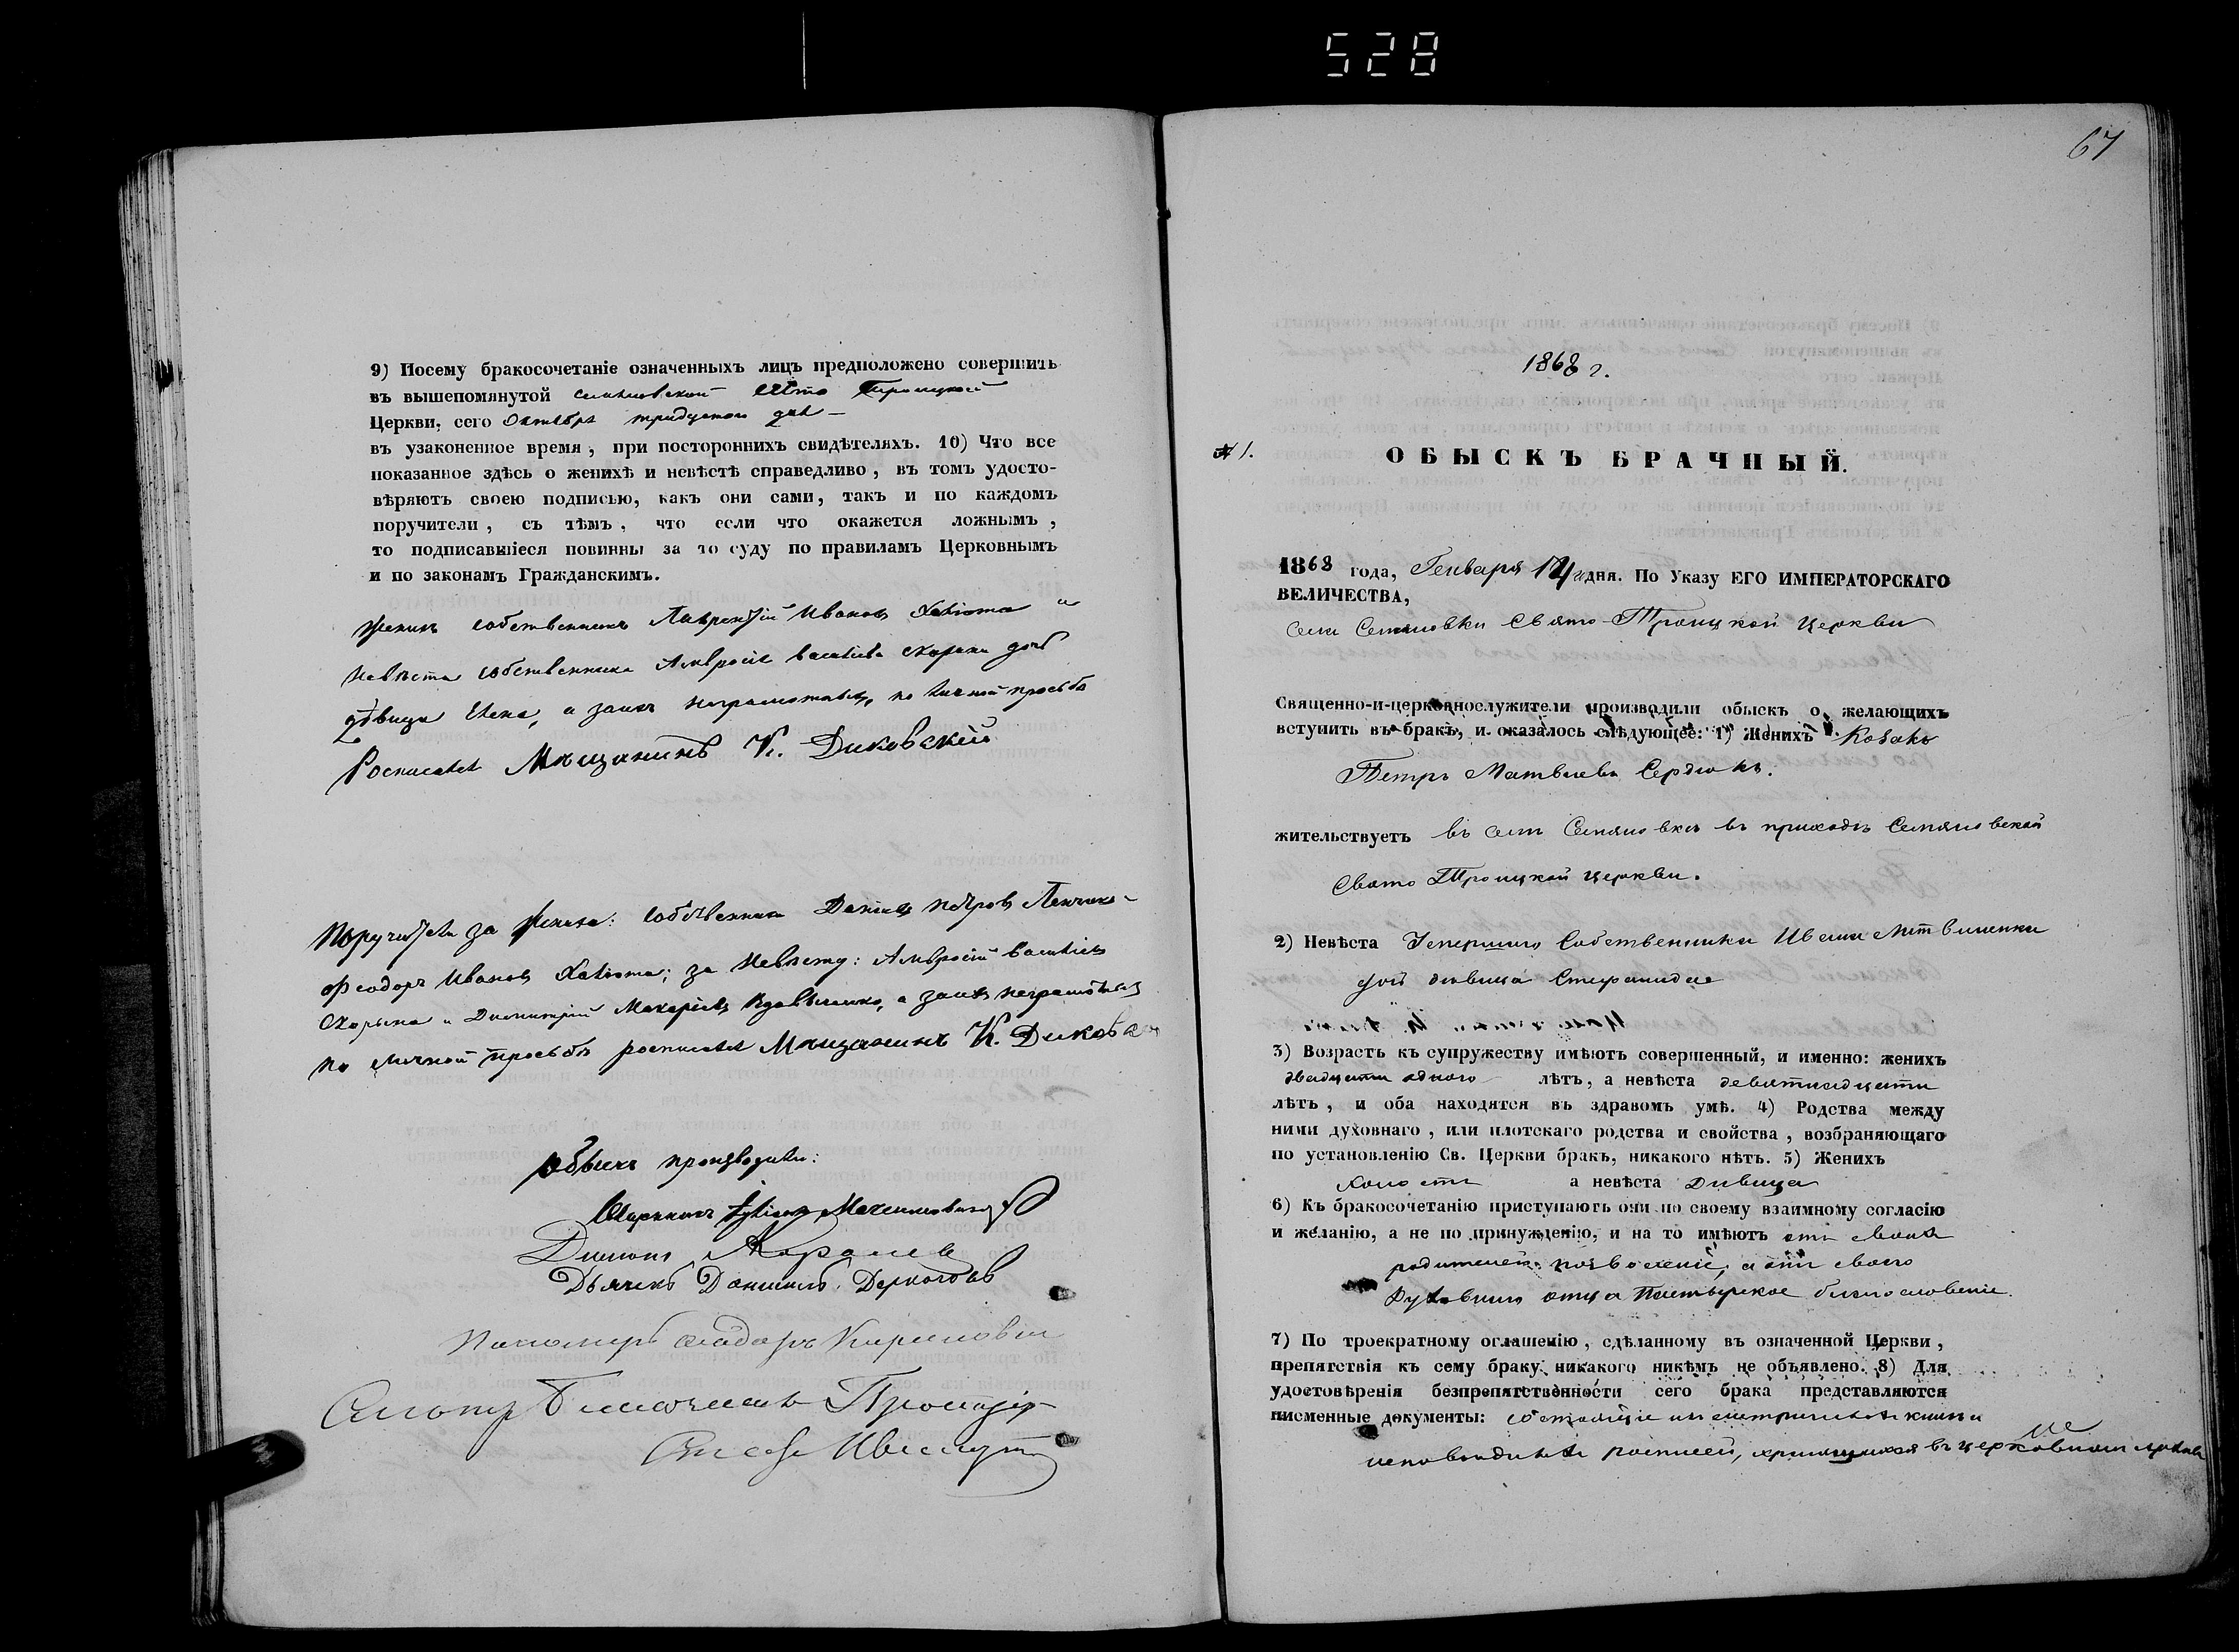 528
9) Посему бракосочетаніе означенныхъ лицъ предположено совершить
въ вышепомянутой Свято Троицкой
Церкви, сего Октября тридцатого дня —
въ узаконенное время, при постороннихъ свидѣтеляхъ. 10) Что все
показанное здѣсь о женихѣ и невѣстѣ справедливо, въ томъ удосто-
вѣряютъ своею подписью, какъ они сами, такъ и по каждомъ
поручители, съ тѣмъ, что если что окажется ложнымъ,
то подписавшіеся повинны за то суду по правиламъ Церковнымъ
и по законамъ Гражданскимъ.
Женихъ собственникъ Лаврентій Ивановъ и
Невѣста собственника Амвросія дочь
дѣвица Елена, а за нихъ неграмотныхъ, по личной просьбѣ
Росписался Мѣщанинъ К. Диковскій
Поручители за жениха: собственники Петровъ
Феодоръ Ивановъ за Невѣсту: Амвросій
и Димитрій а за нихъ неграмотныхъ
по личной просьбѣ росписался Мѣщанинъ К.
Обыскъ производили:
Дьячекъ Даніилъ
67
1868 г.
№ 1.
ОБЫСКЪ БРАЧНЫЙ.
1868 года, Генваря 14 дня. По Указу ЕГО ИМПЕРАТОРСКАГО
ВЕЛИЧЕСТВА,
села Семяновки Свято-Троицкой Церкви
Священно-и-церковнослужители производили обыскъ о желающихъ
вступить въ бракъ, и оказалось слѣдующее: 1) Женихъ Козакъ
Петръ Матвѣевъ Сердюкъ.
жительствуетъ въ селѣ Семяновкѣ въ приходѣ Семяновской
Свято Троицкой церкви.
2) Невѣста Собственника Ивана Литвиненка
дочь дѣвица Стефанида
3) Возрастъ къ супружеству имѣютъ совершенный, и именно: женихъ
двадцати одного лѣтъ, а невѣста девятнадцати
лѣтъ, и оба находятся въ здравомъ умѣ. 4) Родства между
ними духовнаго, или плотскаго родства и свойства, возбраняющаго
по установленію Св. Церкви бракъ, никакого нѣтъ. 5) Женихъ
холостъ а невѣста дѣвица
6) Къ бракосочетанію приступаютъ они по своему взаимному согласію
и желанію, а не по принужденію, и на то имѣютъ отъ своихъ
родителей позволеніе, а отъ своего
духовнаго отца Пастырское благословеніе.
7) По троекратному оглашенію, сдѣланному въ означенной Церкви,
препятствія къ сему браку никакого никѣмъ не объявлено. 8) Для
удостовѣренія безпрепятственности сего брака представляются
писменные документы:
росписей, въ церковномъ